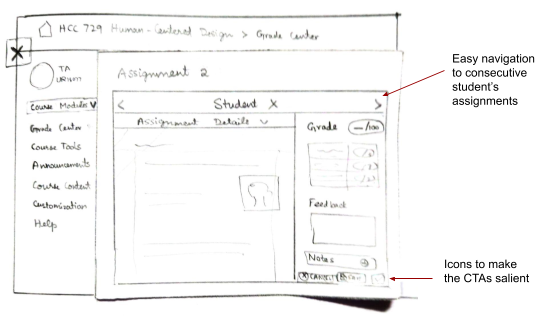 HCC 729 Human-Centered Design > Grade Center
X
TA
Assignment 2
Course Modules V
Grade Center
Course Tools
Announcements
Course Content
Customization
Help
< Student X >
Assignment Details
Grade
—/100
Feedback
Notes
CANCEL
Easy navigation
to consecutive
student's
assignments
Icons to make
the CTAs salient